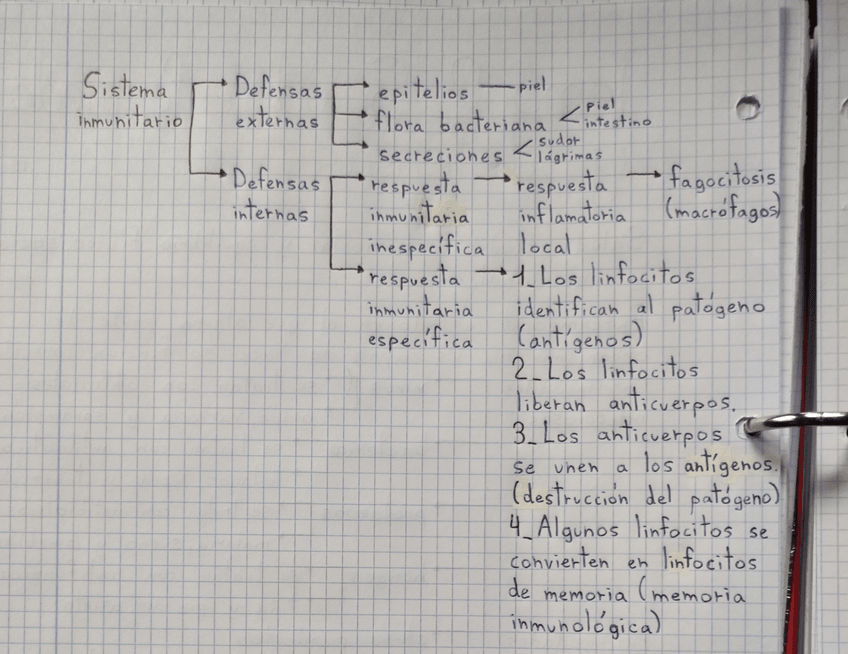 Sistema
inmunitario
Defensas
externas
epitelios
piel
flora bacteriana
piel
intestino
secreciones
sudor
lágrimas
Defensas
internas
respuesta
inmunitaria
inespecífica
respuesta
inflamatoria
local
fagocitosis
(macrófagos)
respuesta
inmunitaria
específica
1_Los linfocitos
identifican al patógeno
(antígenos)
2_Los linfocitos
liberan anticuerpos.
3_Los anticuerpos
se unen a los antígenos.
(destrucción del patógeno)
4_Algunos linfocitos se
convierten en linfocitos
de memoria (memoria
inmunológica)